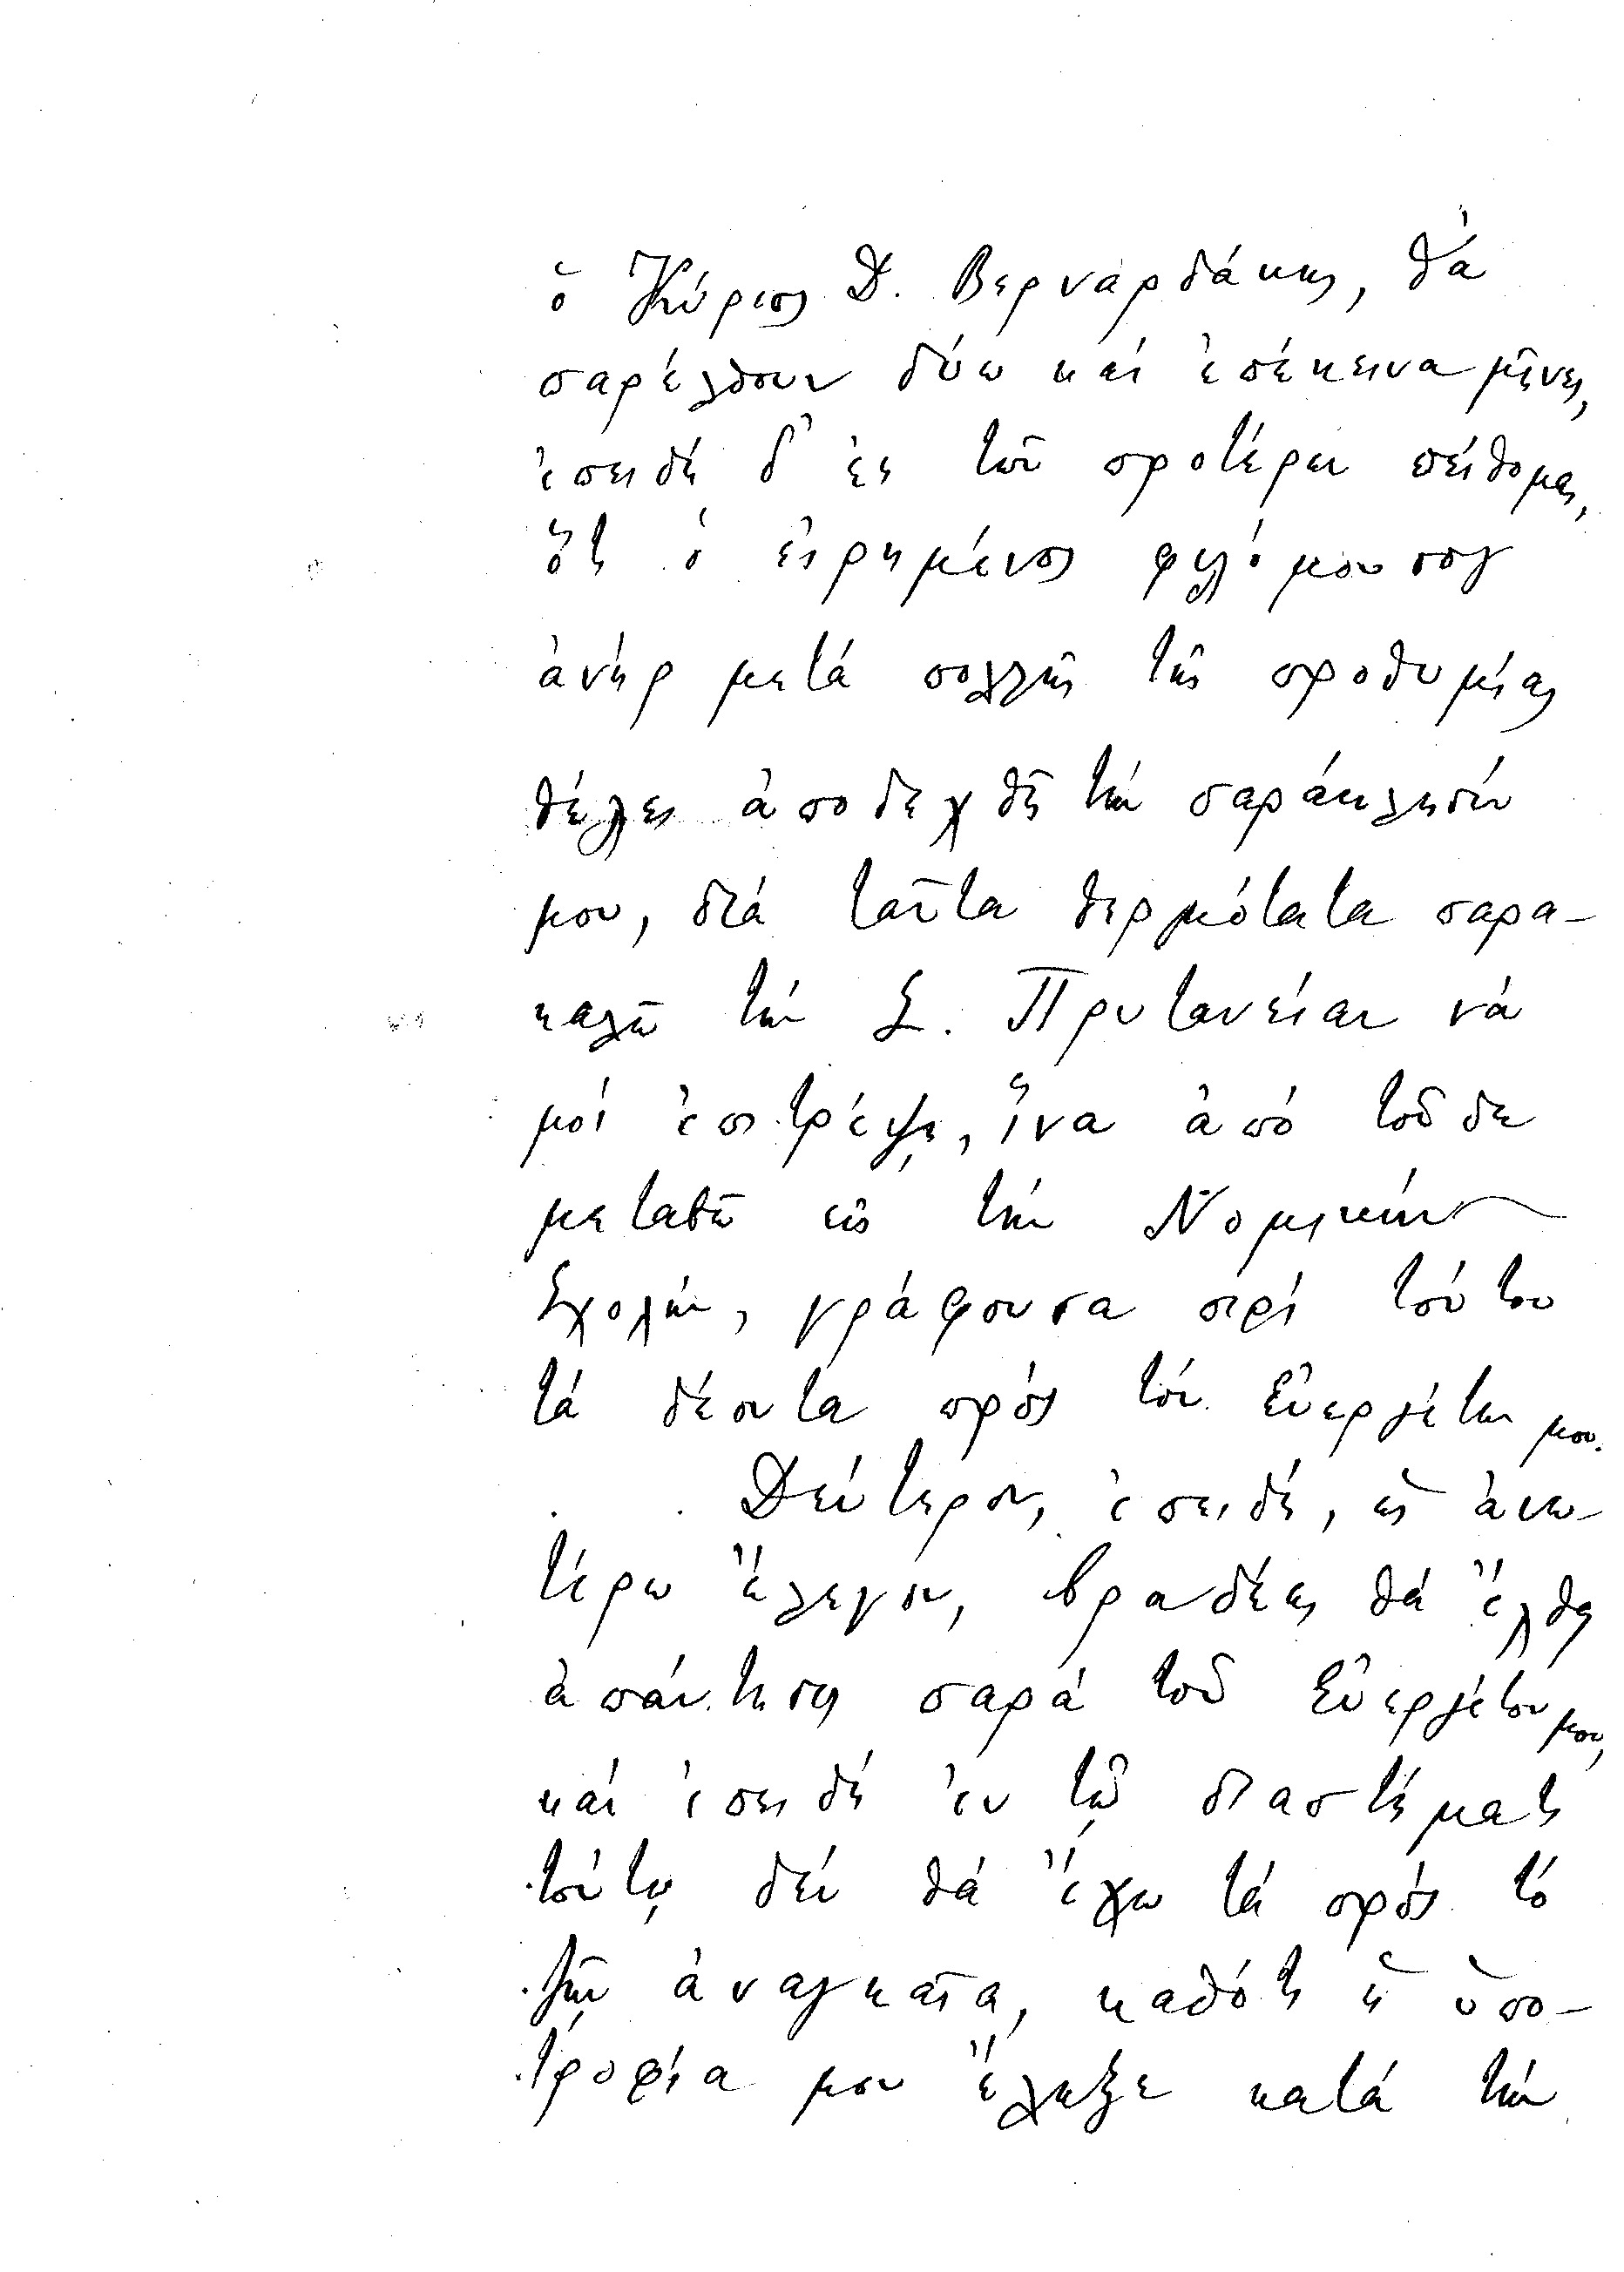 ὁ Κύριος Δ. Βερναρδάκης, θὰ
παρέλθουν δύω καὶ ἐπέκεινα μῆνες,
ἐπειδὴ δ' ἐκ τῶν προτέρων πείθομαι,
ὅτι ὁ εἰρημένος φιλόμουσος
ἀνὴρ μετὰ πολλῆς τῆς προθυμίας
θέλει ἀποδεχθῆ τὴν παράκλησίν
μου, διὰ ταῦτα θερμότατα παρα-
καλῶ τὴν Σ. Πρυτανείαν νὰ
μοὶ ἐπιτρέψῃ, ἵνα ἀπὸ τοῦδε
μεταβῶ εἰς τὴν Νομικὴν
Σχολήν, γράφουσα περὶ τούτου
τὰ δέοντα πρὸς τὸν Εὐεργέτην μου.
Δεύτερον, ἐπειδή, ὡς ἀνω-
τέρω ἔλεγον, βραδέως θὰ ἔλθῃ
ἀπάντησις παρὰ τοῦ Εὐεργέτου μου,
καὶ ἐπειδὴ ἐν τῷ διαστήματι
τούτῳ δὲν θὰ ἔχω τὰ πρὸς τὸ
ζῆν ἀναγκαῖα, καθότι ἡ ὑπο-
τροφία μου ἔληξε κατὰ τὴν